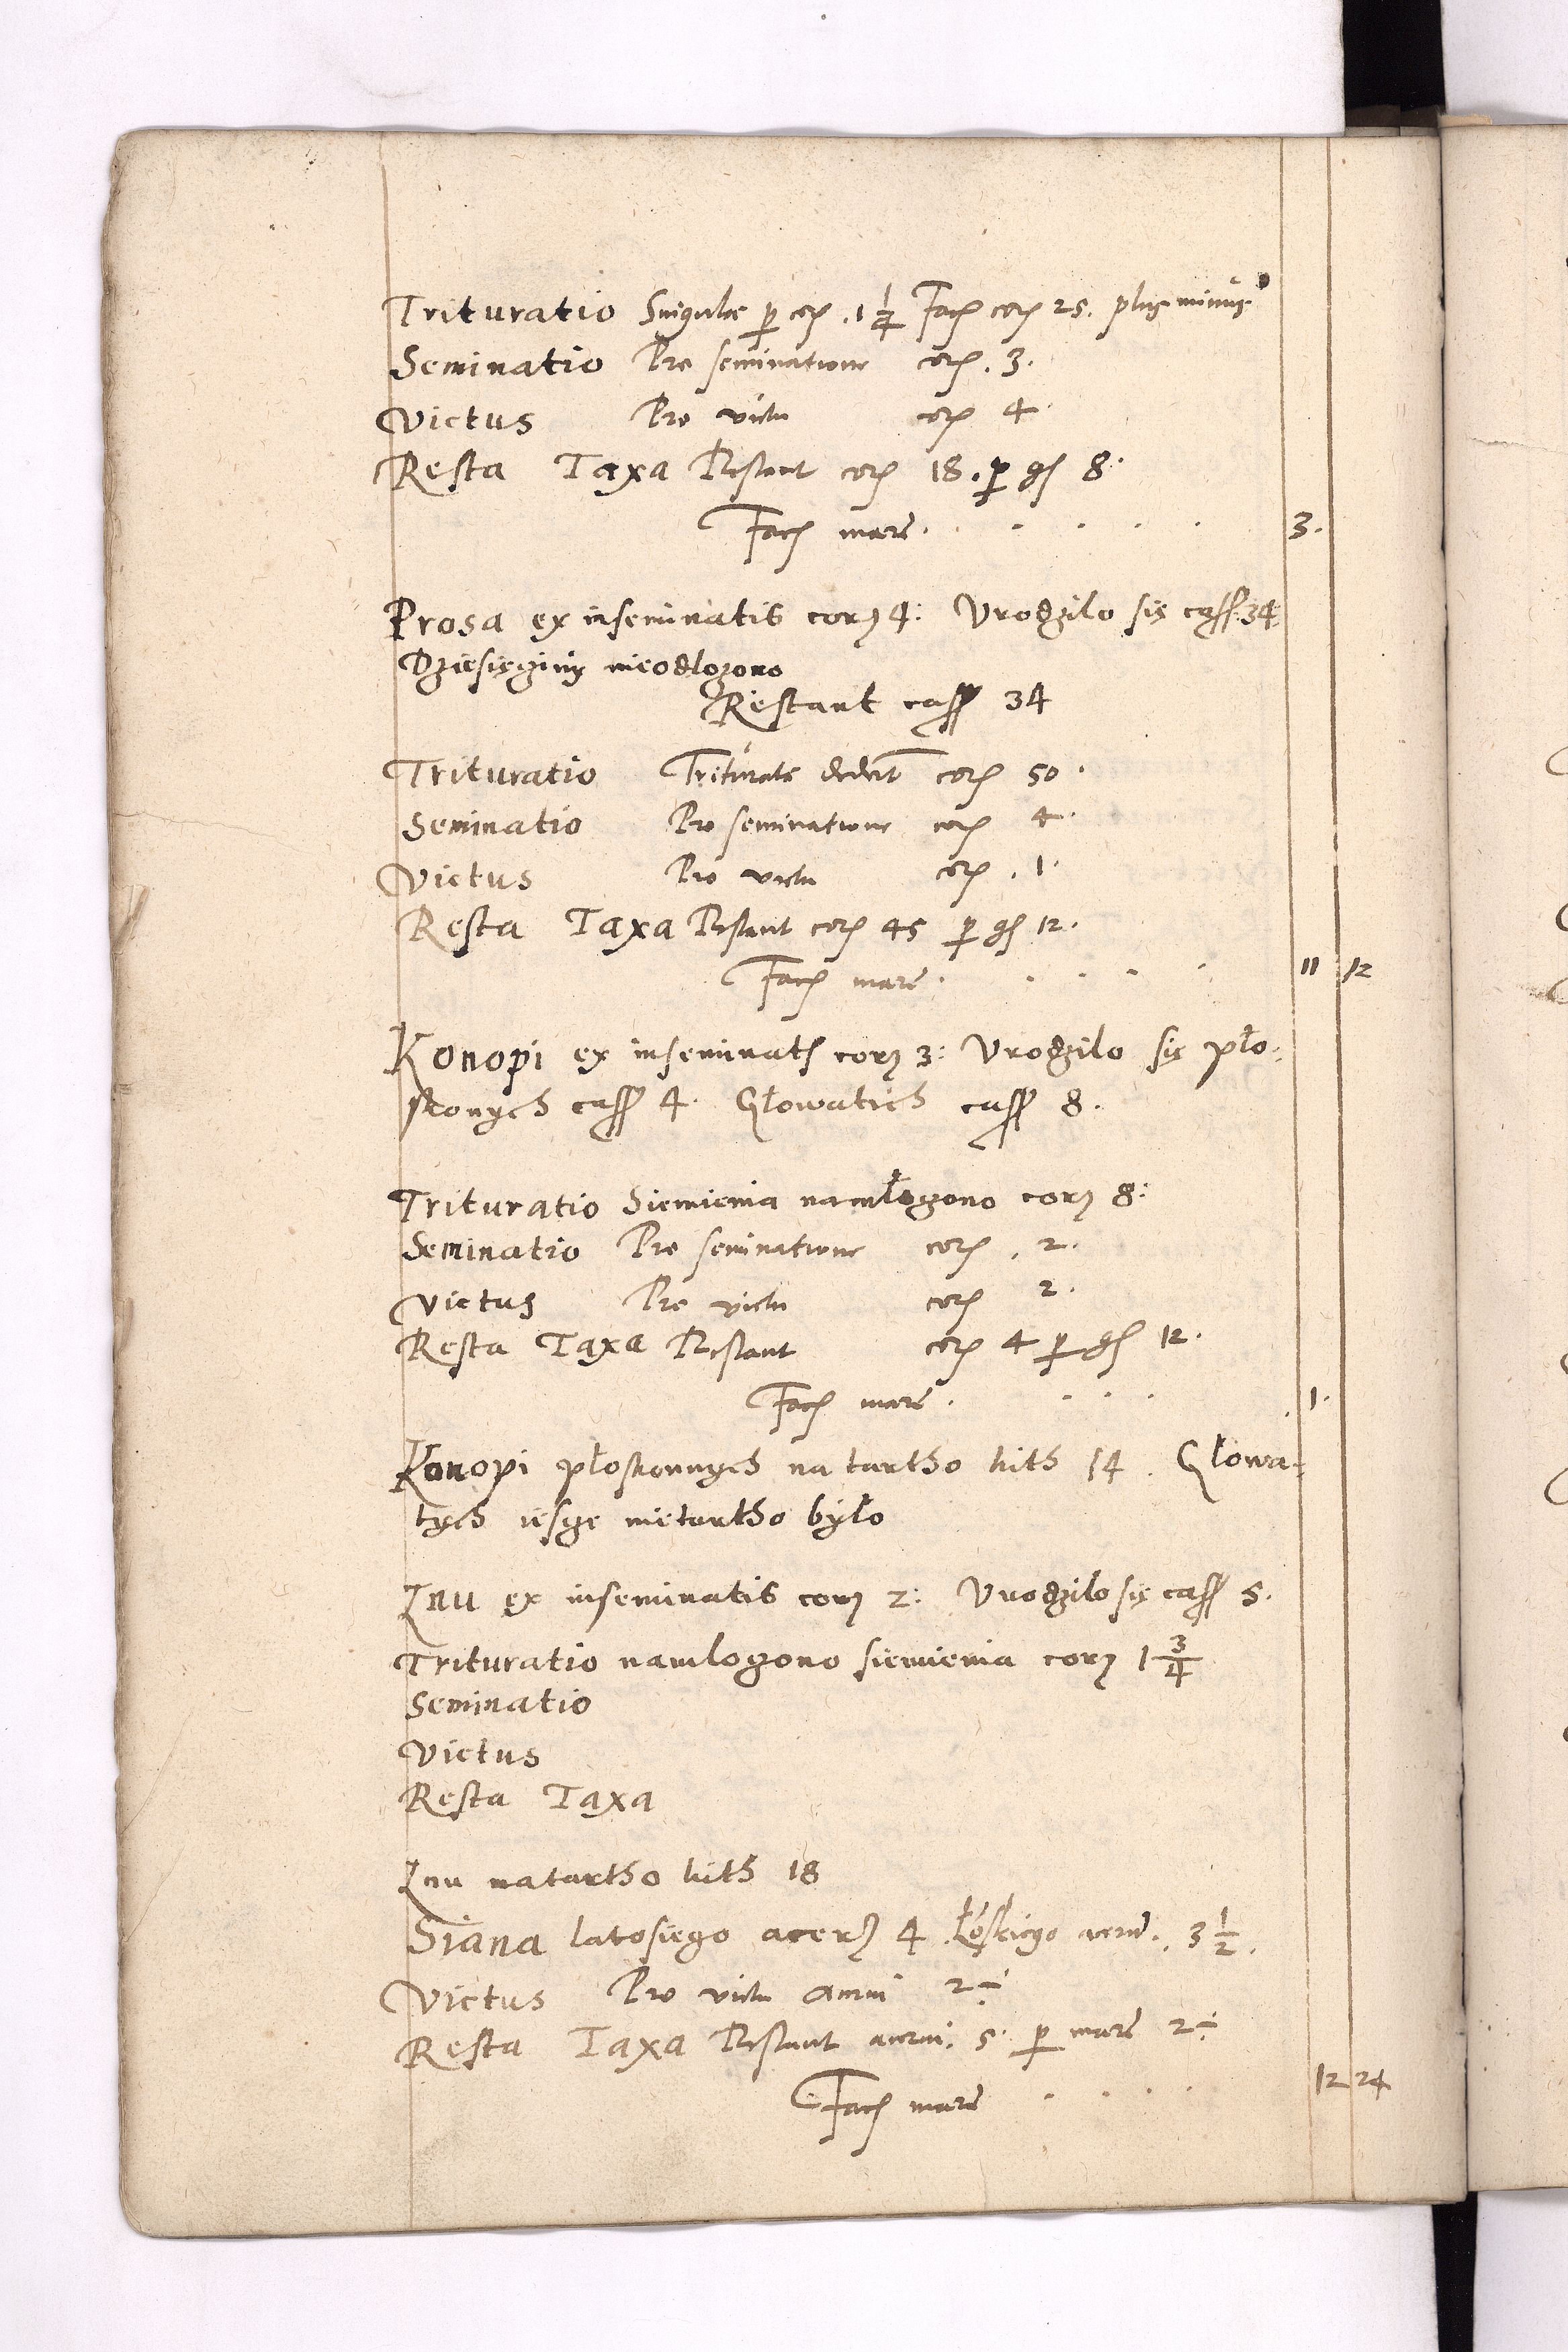 Trituratio Singulae p corṣ . 1 1/4 Facṣ corṣ 25. plus minus
Seminatio Pro seminatione corṣ . 3.
Victus Pro victu corṣ 4.
Resta Taxa Restant corṣ 18. p gṣ 8.
Facṣ marc̃ . . . . . 3.
Prosa ex inseminatis corṣ 4: Vrodzilo się cass. 34
Dziesięginy nieodlozono
Restant cass 34
Trituratio Triturate dedert̃ corṣ 50.
Seminatio Pro seminatione corṣ 4.
Victus Pro victu corṣ . 1.
Resta Taxa Restant corṣ 45 p gṣ 12.
Facṣ marc̃ . . . . . 11 12
Konopi ex inseminatṣ corṣ 3: Vrodzilo się pło:
skonych cass 4. Głowatich cass 8.
Trituratio Siemienia namłogono corṣ 8:
Seminatio Pro seminatione corṣ . 2.
Victus Pro victu corṣ 2.
Resta Taxa Restant corṣ 4 p gṣ 12.
Facṣ marc̃ . . . . 1.
Konopi płoskonnych na tartho kith 14. Głowa:
tych iesge nietartho było
Lnu ex inseminatis corṣ 2: Vrodzilo się cass 5.
Trituratio namlogono siemienia corṣ 1 3/4
Seminatio
Victus
Resta Taxa
Lnu natartho kith 18
Siana latosiego acerṣ 4 Łoskiego acerũ. 3 1/2.
Victus Pro victu acerui 2 ÷
Resta Taxa Restant acerui. 5. p marc̃ 2 ÷
Facṣ marc̃ . . . . 12 24